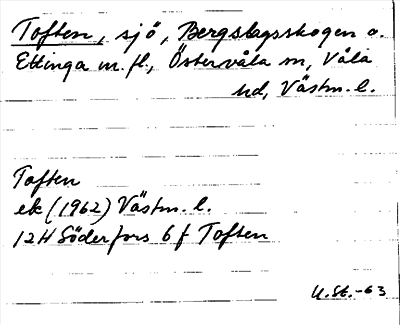 Toften, sjö, Bergslagsskogen o.
Ettinga m. fl., Östervåla sn, Våla
hd, Västm. l.
Toften
ek (1962) Västm. l.
12H Söderfors 6 f Toften
U.St.-63